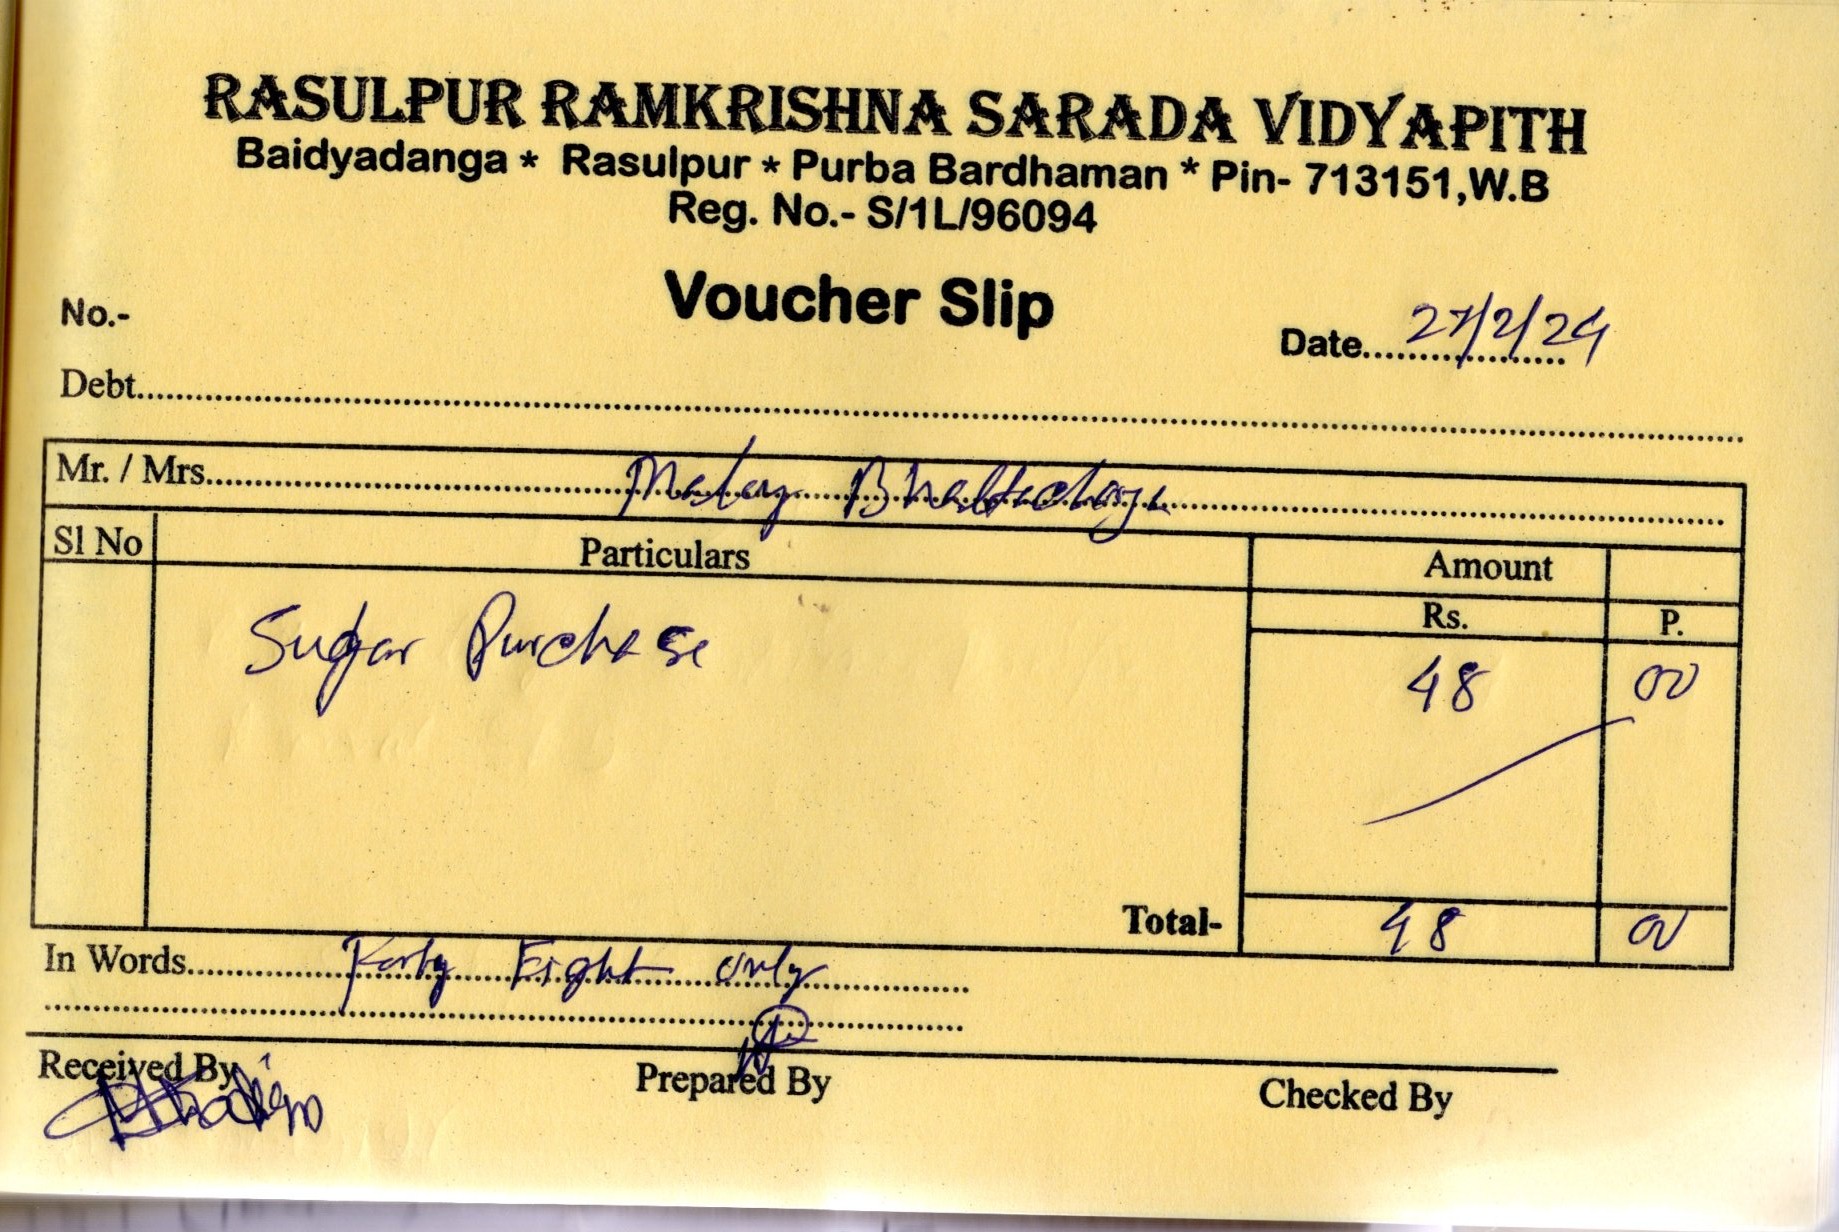 RASULPUR RAMKRISHNA SARADA VIDYAPITH
Baidyadanga * Rasulpur * Purba Bardhaman * Pin- 713151,W.B
Reg. No.- S/1L/96094
Voucher Slip
No.-
Date 27/2/24
Debt
Mr. / Mrs. Bhattacharya
Sl No Particulars Amount
Rs. P.
Sugar Purchase 48 00
Total- 48 00
In Words Forty Eight only
Received By Prepared By Checked By